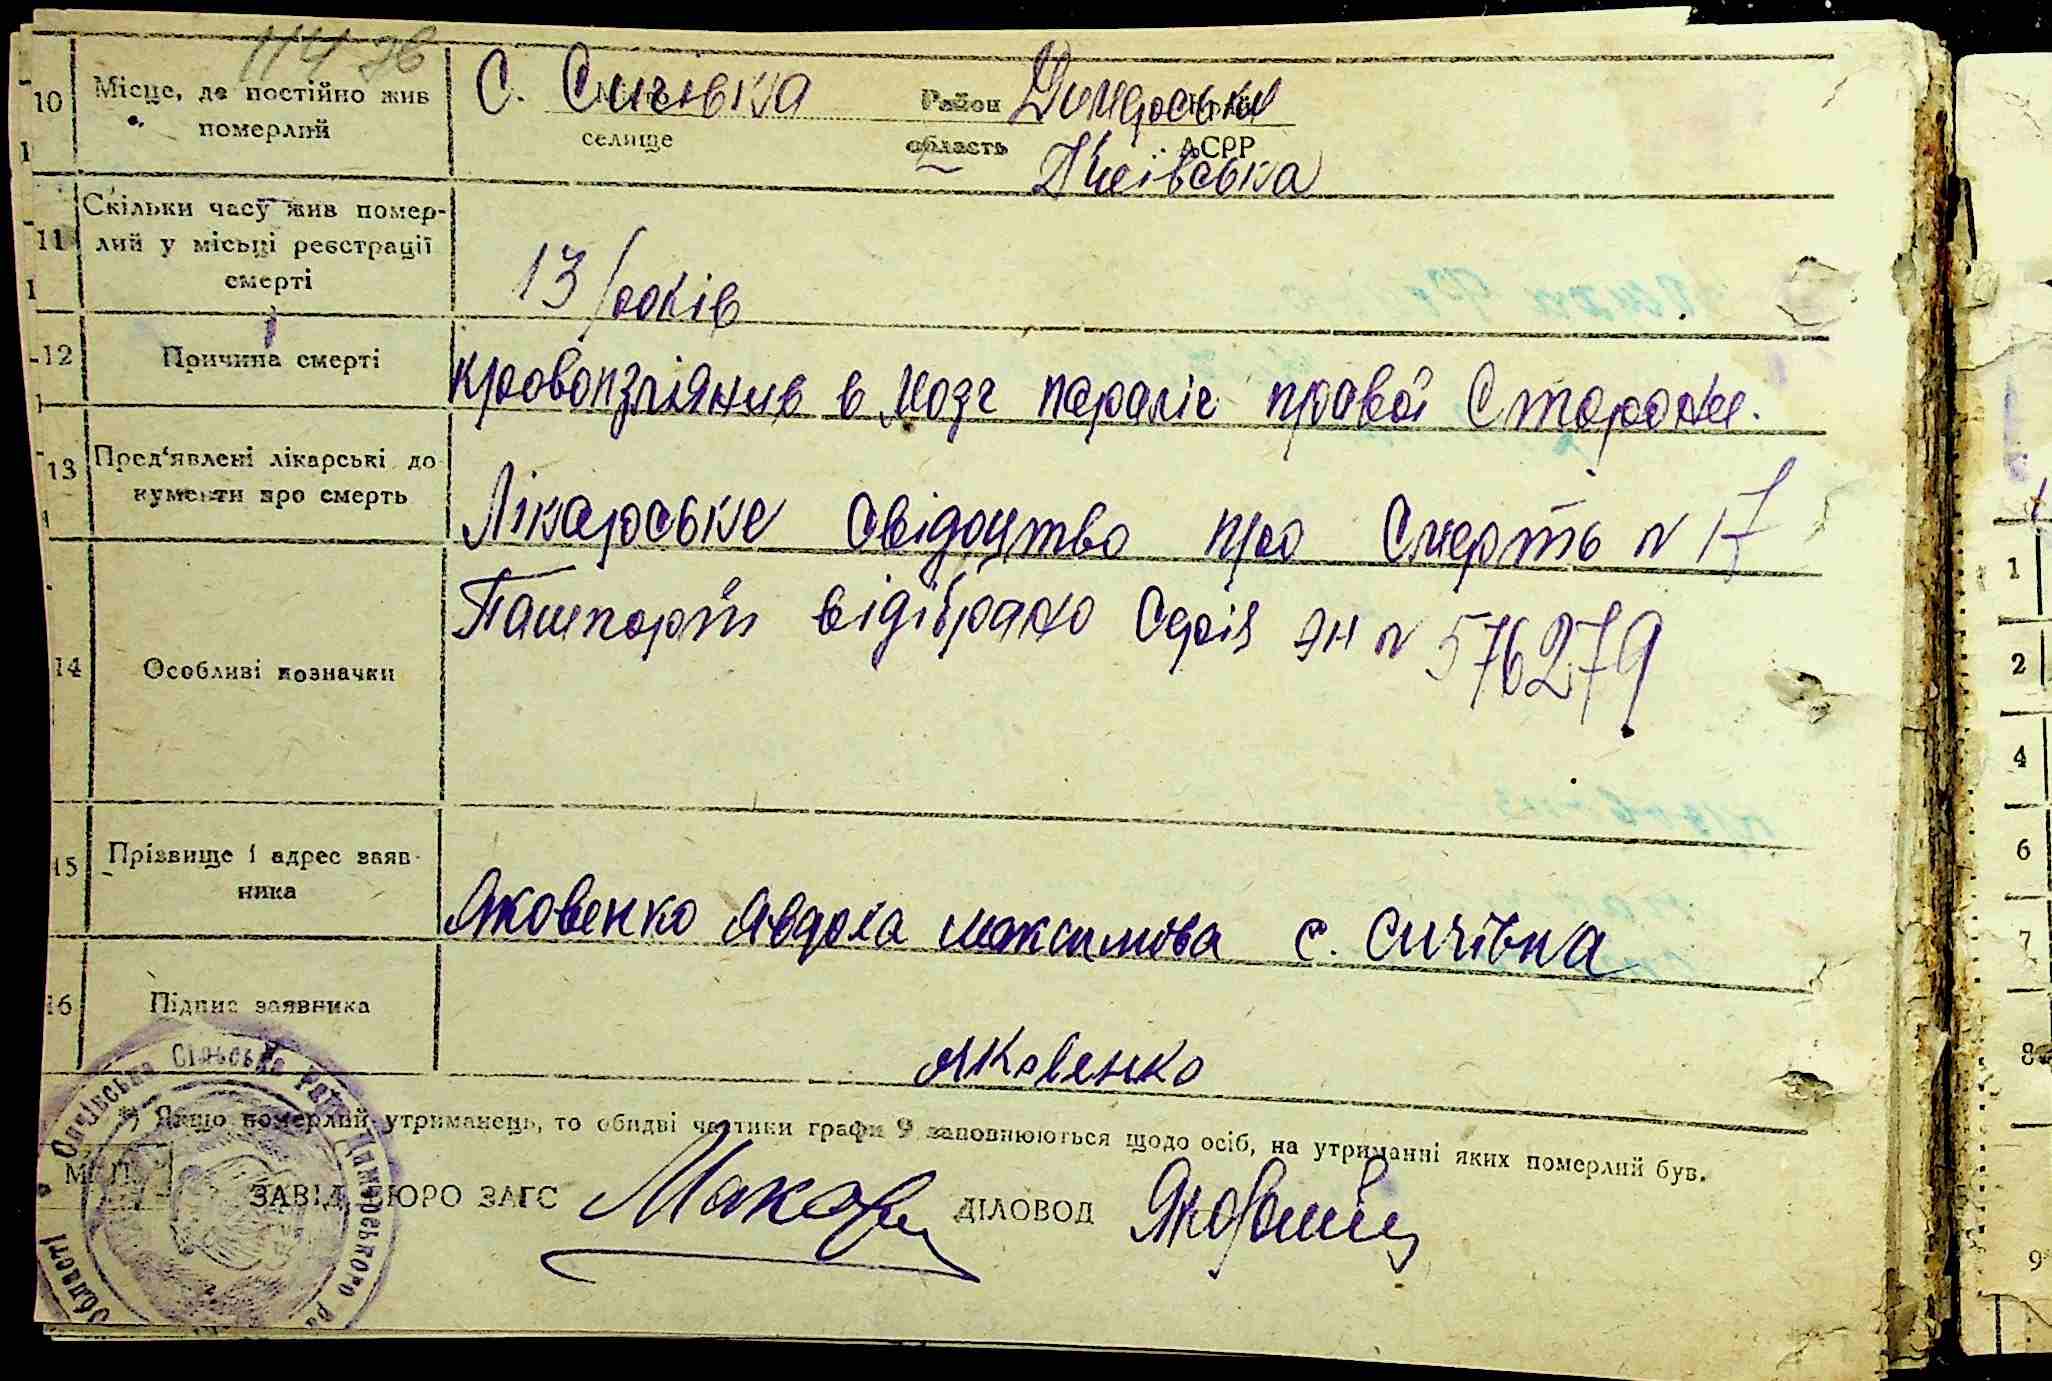 114 зв
10 Місце, де постійно жив С. Сичівка Район Димерськи
померлий селище область АСРР
Київська
11 Скільки часу жив помер-
лий у місьці реєстрації
смерті 13 років
12 Причина смерті кровоизліяние в мозг параліч правої Сторони.
13 Пред'явлені лікарські до
кументи про смерть Лікарське свідоцтво про Смерть N 17
14 Особливі позначки Пашпорт відібрано Серія ЭН N 576279
15 Прізвище і адрес заяв-
ника Яковенко Явдоха максимова с. Сичівка
16 Підпис заявника
Яковенко
*) Якщо померлий утриманець, то обидві частини графи 9 заповнюються щодо осіб, на утриманні яких померлий був.
М. П.
ЗАВІД. БЮРО ЗАГС ДІЛОВОД
Сичівська Сільська Рада Димерського ра
Області
1
2
4
6
7
8
9